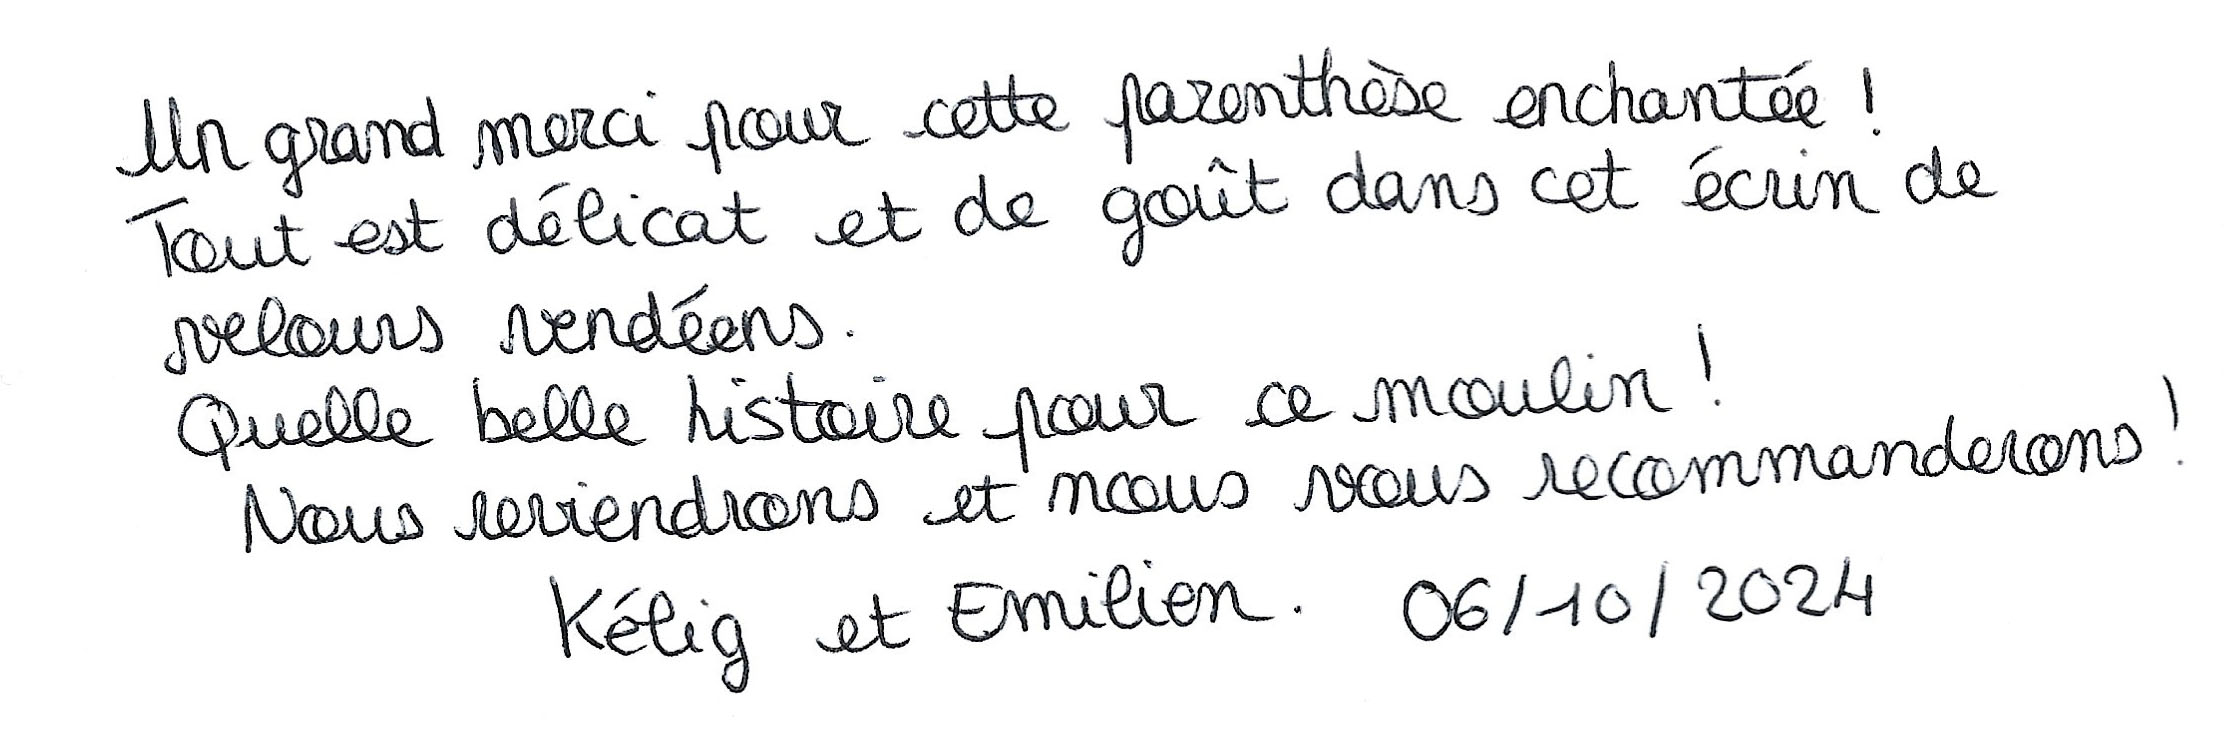 Un grand merci pour cette parenthèse enchantée !
Tout est délicat et de goût dans cet écrin de
velours vendéens.
Quelle belle histoire pour ce moulin !
Nous reviendrons et nous vous recommanderons !
Kélig et Emilien. 06/10/2024